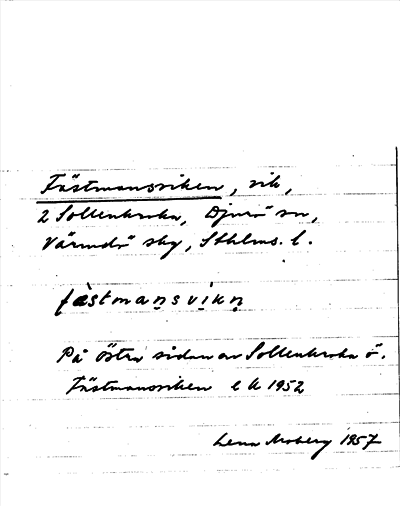 Fästmansviken, vik,
2 Sollenkroka, Djurö sn,
Värmdö skg, Sthlms. l.
fästmaṇsvikṇ
På östra sidan av Sollenkroka ö.
Fästmansviken e k 1952
Lena Moberg 1957